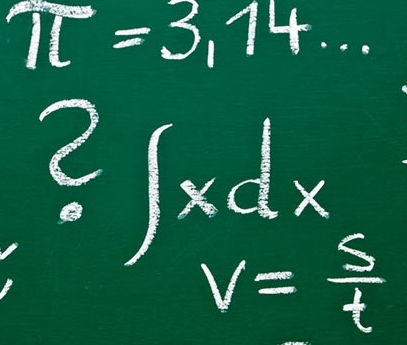 π = 3,14...
?
∫xdx
v = s/t